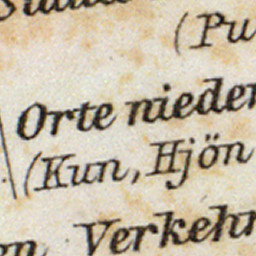 (Pu
Orte nieder
(Kun, Hjön
en Verkehr